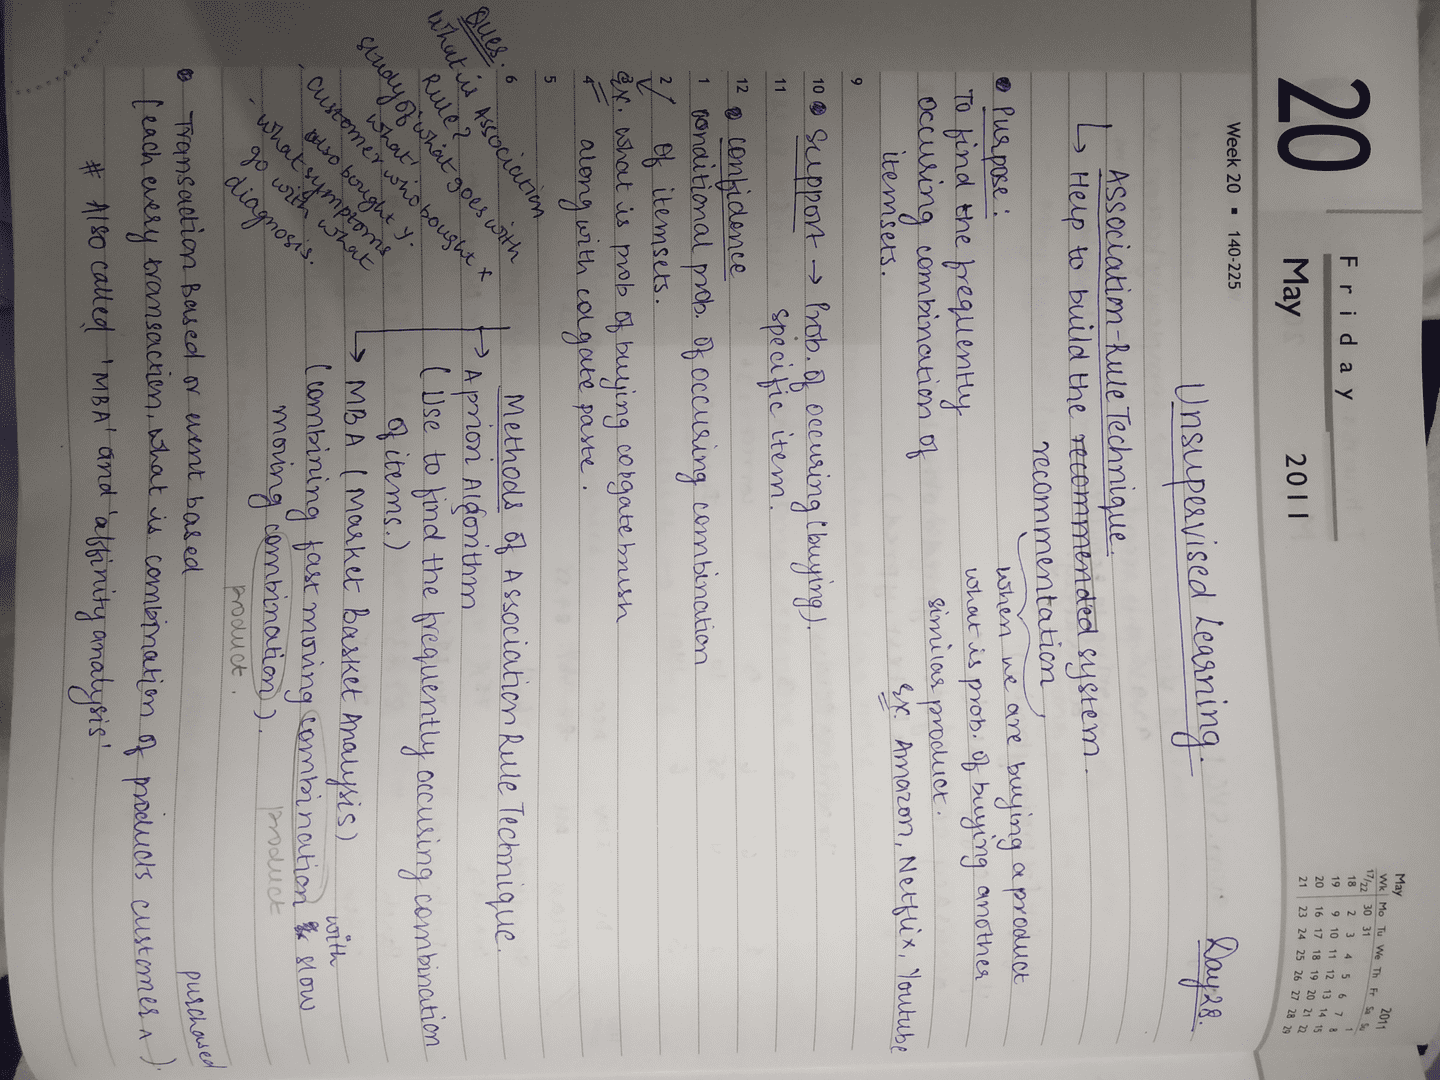 20
Friday
May 2011
Week 20 ▪ 140-225
May 2011
Wk Mo Tu We Th Fr Sa Su
17/22 30 31 1
18 2 3 4 5 6 7 8
19 9 10 11 12 13 14 15
20 16 17 18 19 20 21 22
21 23 24 25 26 27 28 29
Day 28.
Unsupervised Learning.
Association-Rule Technique.
↳ Help to build the recommended system.
recommentation
when we are buying a product
what is prob. of buying another
similar product.
Ex. Amazon, Netflix, Youtube
Purpose:
To find the frequently
occusing combination of
itemsets.
9
10 Support → Prob. of occuring (buying).
11 specific item.
12 confidence
1 conditional prob. of occusing combination
2 of itemsets.
Ex. what is prob of buying colgate brush
4 along with colgate paste.
5
6
Ques.
what is Association
Rule?
study of 'what goes with
what'
customer who bought x
also bought y.
what symptoms
go with what
diagnosis.
Methods of Association Rule Technique.
→ Apriori Algorithm
(Use to find the frequently occusing combination
of items.)
→ MBA (Market Basket Analysis)
(combining fast moving combination with slow
product
moving combination).
product.
Transaction Based or event based
(each every transaction, what is combination of products customer ^ purchased).
# Also called 'MBA' and 'affinity analysis'